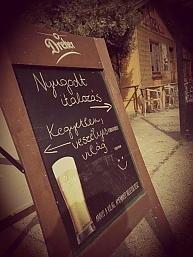 Dreher
Nyugodt
italozás
Kegyetlen,
veszélyes
világ